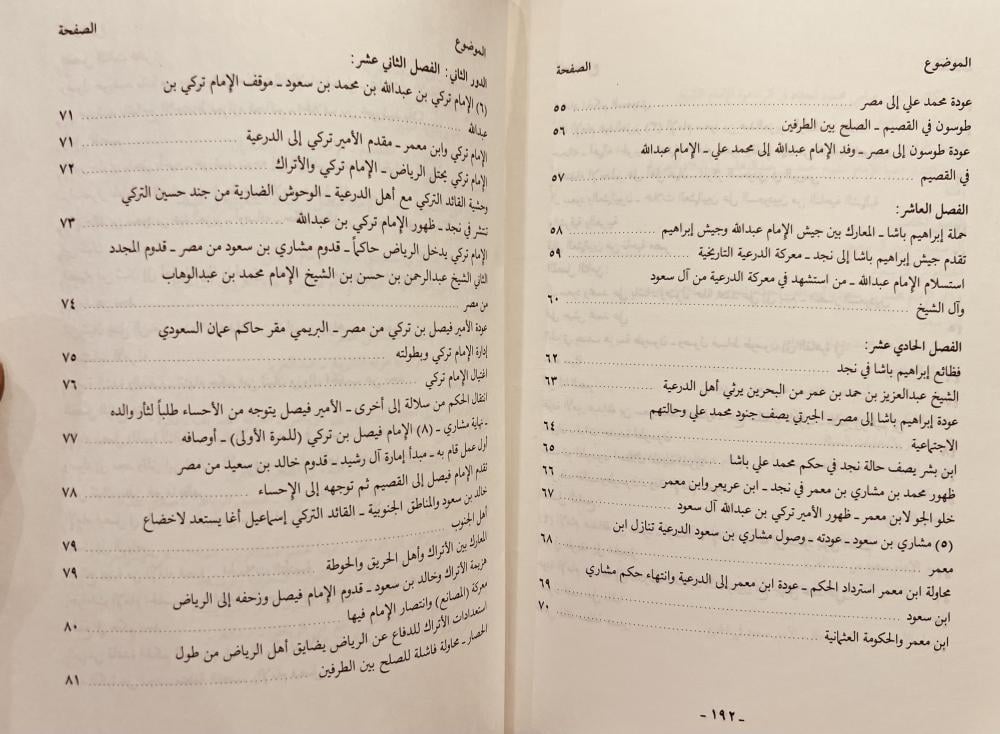 الموضوع الصفحة
عودة محمد علي إلى مصر ٥٥
طوسون في القصيم ـ الصلح بين الطرفين ٥٦
عودة طوسون إلى مصر ـ وفد الإمام عبدالله إلى محمد علي ـ الإمام عبدالله
في القصيم ٥٧
الفصل العاشر:
حملة إبراهيم باشا ـ المعارك بين جيش الإمام عبدالله وجيش إبراهيم ٥٨
تقدم جيش إبراهيم باشا إلى نجد ـ معركة الدرعية التاريخية ٥٩
استسلام الإمام عبدالله ـ من استشهد في معركة الدرعية من آل سعود
وآل الشيخ ٦٠
الفصل الحادي عشر:
فظائع إبراهيم باشا في نجد ٦٢
الشيخ عبدالعزيز بن حمد بن عمر من البحرين يرثي أهل الدرعية ٦٣
عودة إبراهيم باشا إلى مصر ـ الجبرتي يصف جنود محمد علي وحالتهم
الاجتماعية ٦٤
ابن بشر يصف حالة نجد في حكم محمد علي باشا ٦٥
ظهور محمد بن مشاري بن معمر في نجد ـ ابن عريعر وابن معمر ٦٦
خلو الجو لابن معمر ـ ظهور الأمير تركي بن عبدالله آل سعود ٦٧
(٥) مشاري بن سعود ـ عودته ـ وصول مشاري بن سعود الدرعية تنازل ابن
معمر ٦٨
محاولة ابن معمر استرداد الحكم ـ عودة ابن معمر إلى الدرعية وانتهاء حكم مشاري
ابن سعود ٦٩
ابن معمر والحكومة العثمانية ٧٠
ـ ١٩٢ ـ
الموضوع الصفحة
الدور الثاني: الفصل الثاني عشر:
(٦) الإمام تركي بن عبدالله بن محمد بن سعود ـ موقف الإمام تركي بن
عبدالله ٧١
الإمام تركي وابن معمر ـ مقدم الأمير تركي إلى الدرعية ٧١
الإمام تركي يحتل الرياض ـ الإمام تركي والأتراك ٧٢
وحشية القائد التركي مع أهل الدرعية ـ الوحوش الضارية من جند حسين التركي
تنتشر في نجد ـ ظهور الإمام تركي بن عبدالله ٧٣
الإمام تركي يدخل الرياض حاكماً ـ قدوم مشاري بن سعود من مصر ـ قدوم المجدد
الثاني الشيخ عبدالرحمن بن حسن بن الشيخ الإمام محمد بن عبدالوهاب
من مصر ٧٤
عودة الأمير فيصل بن تركي من مصر ـ البريمي مقر حاكم عمان السعودي
إدارة الإمام تركي وبطولته ٧٥
اغتيال الإمام تركي ٧٦
انتقال الحكم من سلالة إلى أخرى ـ الأمير فيصل يتوجه من الأحساء طلباً لثأر والده
ـ نهاية مشاري ـ (٨) الإمام فيصل بن تركي (للمرة الأولى) ـ أوصافه ٧٧
أول عمل قام به ـ مبدأ إمارة آل رشيد ـ قدوم خالد بن سعيد من مصر
تقدم الإمام فيصل إلى القصيم ثم توجهه إلى الإحساء ٧٨
خالد بن سعود والمناطق الجنوبية ـ القائد التركي إسماعيل أغا يستعد لاخضاع
أهل الجنوب ٧٩
المعارك بين الأتراك وأهل الحريق والحوطة ٧٩
هزيمة الأتراك وخالد بن سعود ـ قدوم الإمام فيصل وزحفه إلى الرياض
معركة (المصانع) وانتصار الإمام فيها ٨٠
استعدادات الأتراك للدفاع عن الرياض يضايق أهل الرياض من طول
الحصار ـ محاولة فاشلة للصلح بين الطرفين ٨١